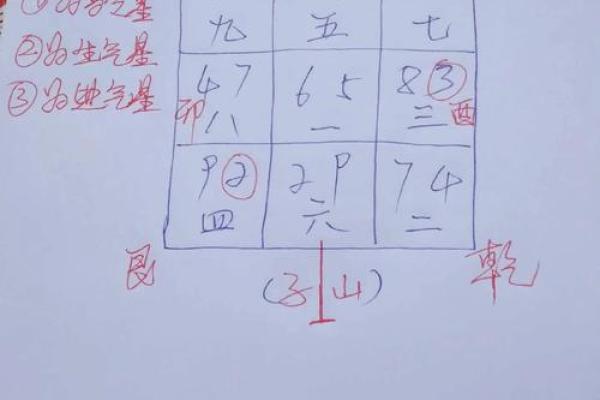 ①为旺气星
②为生气星
③为进气星
九 五 七
4 7 6 5 8 ③
卯 八 一 三 酉
9 ② 2 9 7 4
四 六 二
艮 (子山) 乾